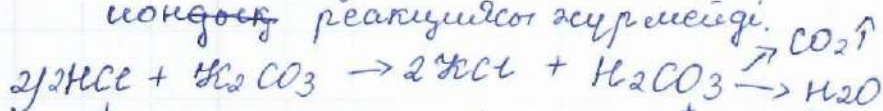 ион реакциясы жүрмейді.
2) 2HCl + K₂CO₃ → 2KCl + H₂CO₃ ↗ CO₂↑ → H₂O